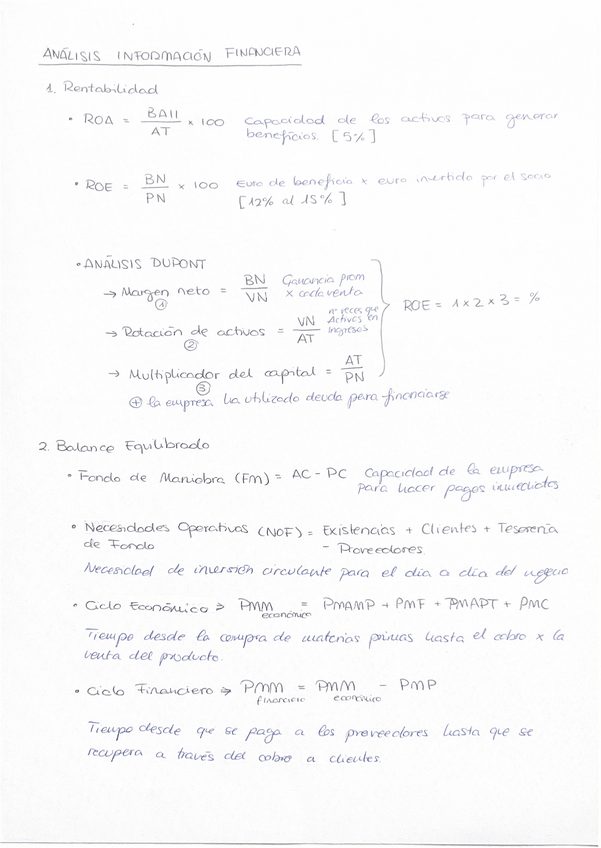 ANÁLISIS INFORMACIÓN FINANCIERA
1. Rentabilidad
• ROA = BAII / AT × 100 Capacidad de los activos para generar
beneficios. [5%]
• ROE = BN / PN × 100 Euro de beneficio x euro invertido por el socio
[12% al 15%]
• ANÁLISIS DUPONT
→ Margen neto = BN / VN Ganancia prom
① x cada venta
→ Rotación de activos = VN / AT nº veces que
② Activos en
ingresos
→ Multiplicador del capital = AT / PN
③
ROE = 1 x 2 x 3 = %
⊕ la empresa ha utilizado deuda para financiarse
2. Balance Equilibrado
• Fondo de Maniobra (FM) = AC - PC Capacidad de la empresa
para hacer pagos inmediatos
• Necesidades Operativas (NOF) = Existencias + Clientes + Tesorería
de Fondo - Proveedores
Necesidad de inversión circulante para el dia a dia del negocio
• Ciclo Económico ⇒ PMM económico = PMAMP + PMF + PMAPT + PMC
Tiempo desde la compra de materias primas hasta el cobro x la
venta del producto.
• Ciclo Financiero ⇒ PMM financiero = PMM económico - PMP
Tiempo desde que se paga a los proveedores hasta que se
recupera a través del cobro a clientes.